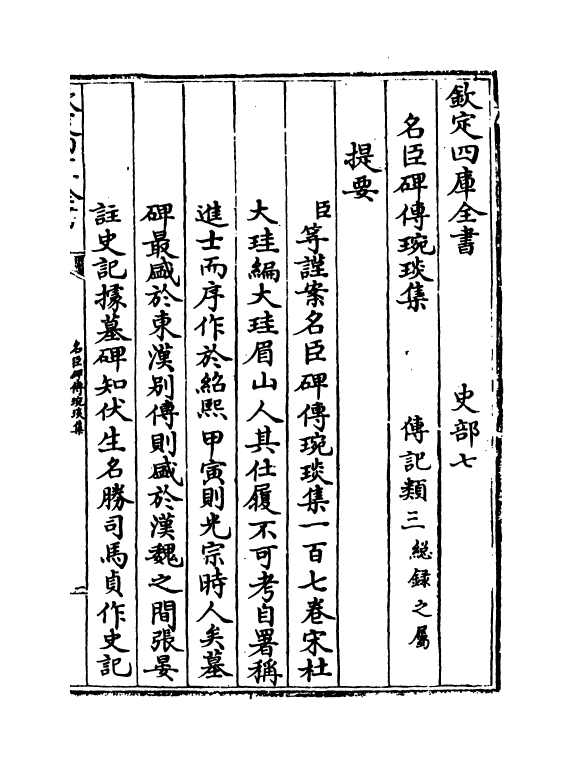 欽定四庫全書　　　史部七
名臣碑傳琬琰集　　傳記類三總録之屬
提要
臣等謹案名臣碑傳琬琰集一百七卷宋杜
大珪編大珪眉山人其仕履不可考自署稱
進士而序作於紹熙甲寅則光宗時人矣墓
碑最盛於東漢别傳則盛於漢魏之間張晏
註史記據墓碑知伏生名勝司馬貞作史記
名臣碑傳琬琰集